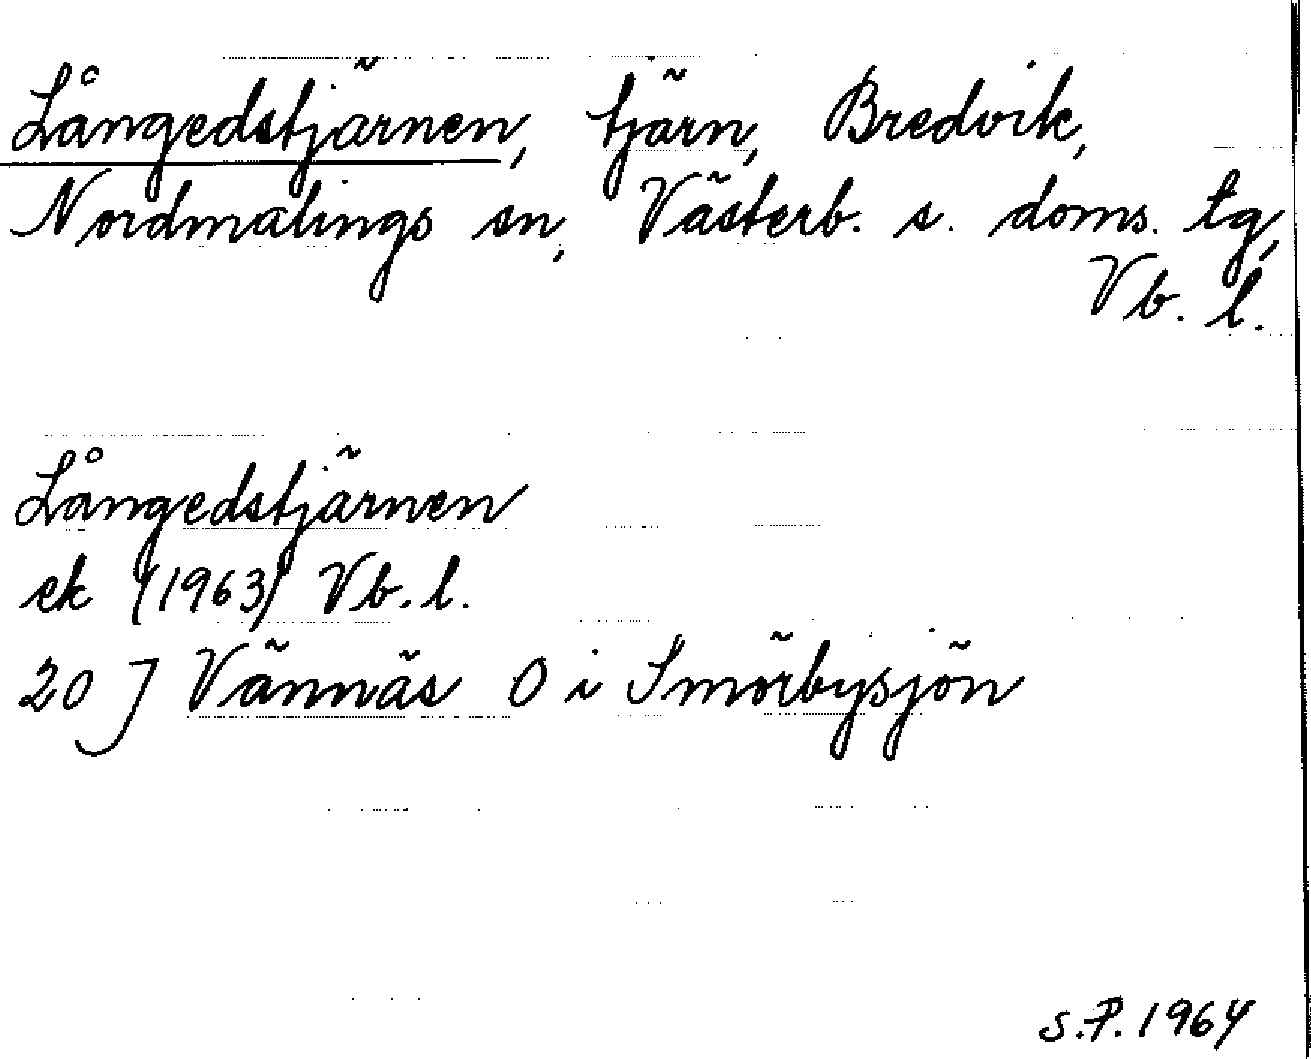 Långedstjärnen, tjärn, Bredvik,
Nordmalings sn, Västerb. s. doms. tg,
Vb. l.
Långedstjärnen
ek (1963) Vb. l.
20 J Vännäs O i Smörbysjön
S.P. 1964